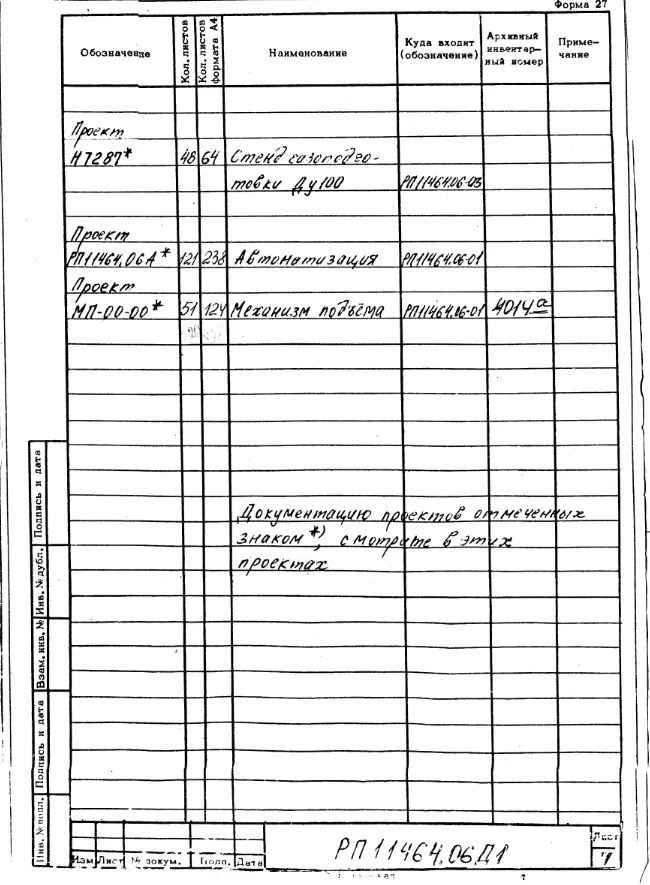 Форма 27
Обозначение Кол. листов Кол. листов формата А4 Наименование Куда входит (обозначение) Архивный инвентарный номер Примечание
Проект
Н7287* 48 64 Стенд газоподго-
товки Ду100 РП11464.06-03
Проект
РП11464.06А* 121 238 Автоматизация РП11464.06-01
Проект
МП-00-00* 51 124 Механизм подъёма РП11464.06-01 4014а
Документацию проектов отмеченных
знаком *), смотрите в этих
проектах
Подпись и дата
Инв. № дубл.
Взам. инв. №
Подпись и дата
Инв. № подл.
РП11464.06Д1
Лист
Изм Лист № докум. Подп. Дата